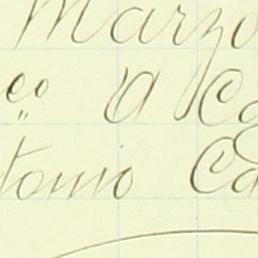 Marzo
co a Ca
tonio Ca